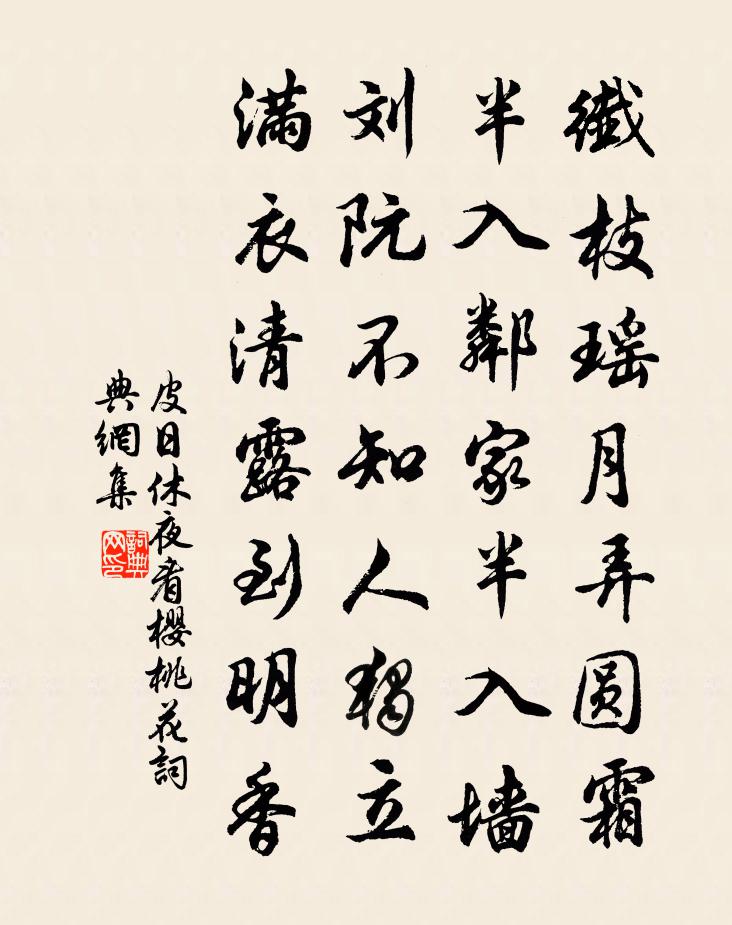 纖枝瑶月弄圆霜
半入鄰家半入墙
刘阮不知人獨立
满衣清露到明香
皮日休夜看櫻桃花詞
典網集
詞典
网印